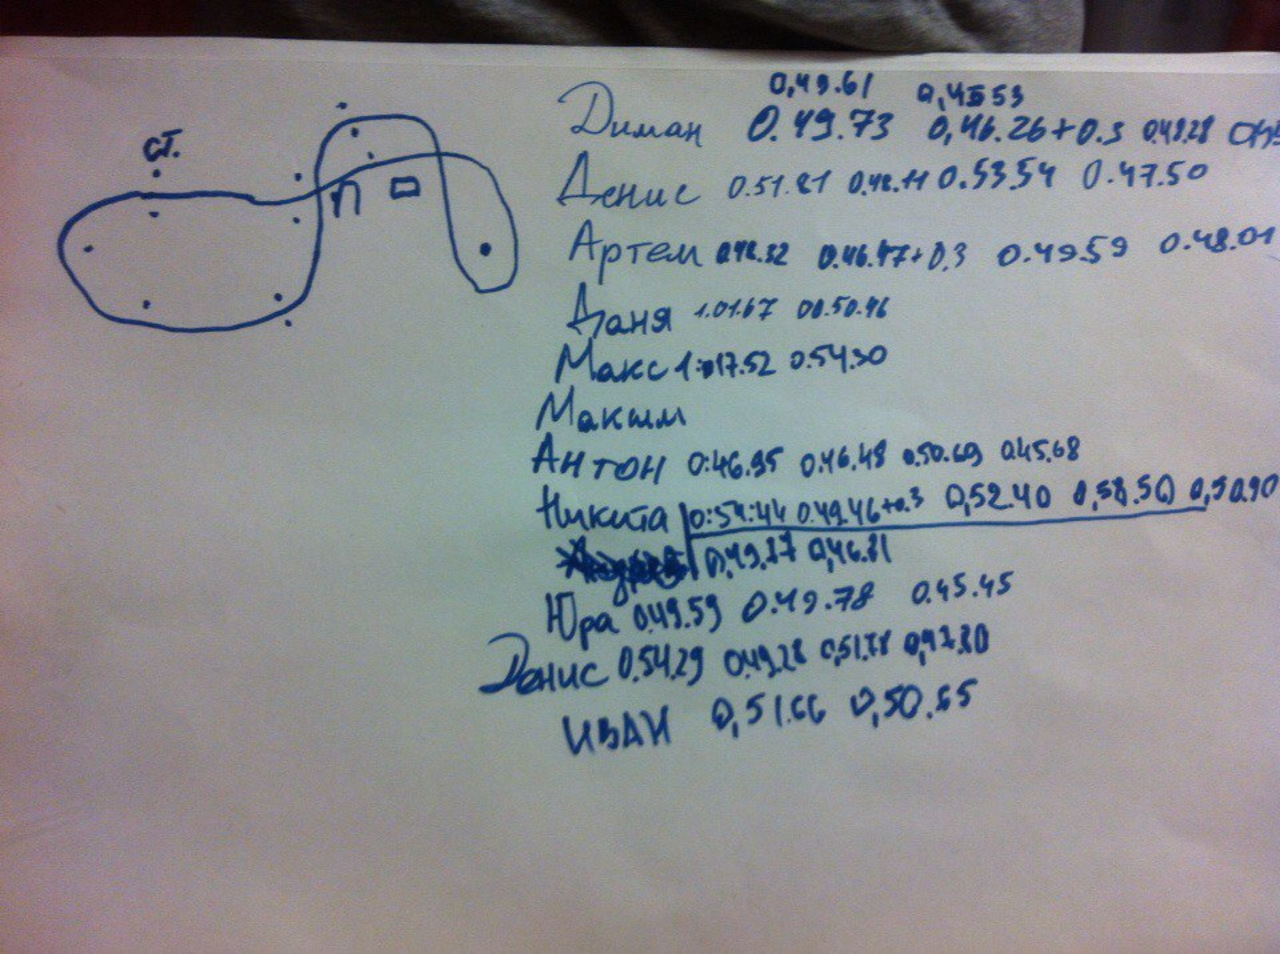 0,49.61
ст.
Диман 0.49.73 0,46.26+0.3 0.49.28
Денис 0.51.81 0.48.11 0.53.54 0.47.50
П
Артем 0.48.32 0.46.47+0.3 0.49.59 0.48.01
Даня 1.01.67 00.50.46
Макс 0.54.30
Максим
Антон 0:46.95 0.46.48 0.50.69 0.45.68
Никита 0:54:44 0.49.46+0.3 0,52.40 0,58.50 0,50.90
0,49.87 0,46.81
Юра 0.49.59 0.49.78 0.45.45
Денис 0.54.29 0.49.28 0,51.78 0,47.80
ИВАН 0,51.66 0,50.65